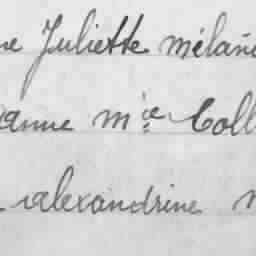 ne Juliette mélan
anne mie Coll
alexandrine